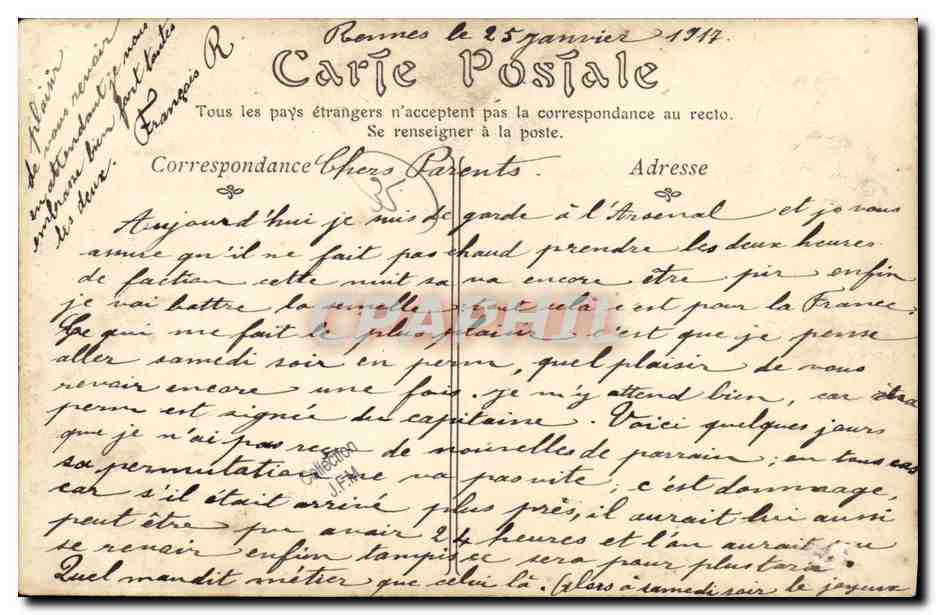 Rennes le 25 Janvier 1917.
Carte Postale
Tous les pays étrangers n'acceptent pas la correspondance au recto.
Se renseigner à la poste.
Correspondance
Adresse
Chers Parents.
35
Aujourd'hui je suis de garde à l'Arsenal et je vous
assure qu'il ne fait pas chaud prendre les deux heures
de faction cette nuit sa va encore être pir enfin
je vai battre la semelle tout cela c'est pour la France.
Ce qui me fait le plus plaisir c'est que je pense
aller samedi soir en perm, quel plaisir de vous
revoir encore une fois. je m'y attend bien, car
perm est signée du capitaine. Voici quelques jours
que je n'ai pas reçu de nouvelles de parrain, en tous cas
sa permutation ne va pas vite; c'est dommage,
car s'il était arrivé plus près, il aurait lui aussi
peut être pu avoir 24 heures et l'on aurait pu
se revoir enfin tampis ce sera pour plus tard.
Quel maudit métier que celui là. Alors à samedi soir le joyeux
plaisir
de vous revoir
en attendant je vous
embrasse bien fort toutes
les deux.
François R
CPAPHIL
Collection
J.F.M